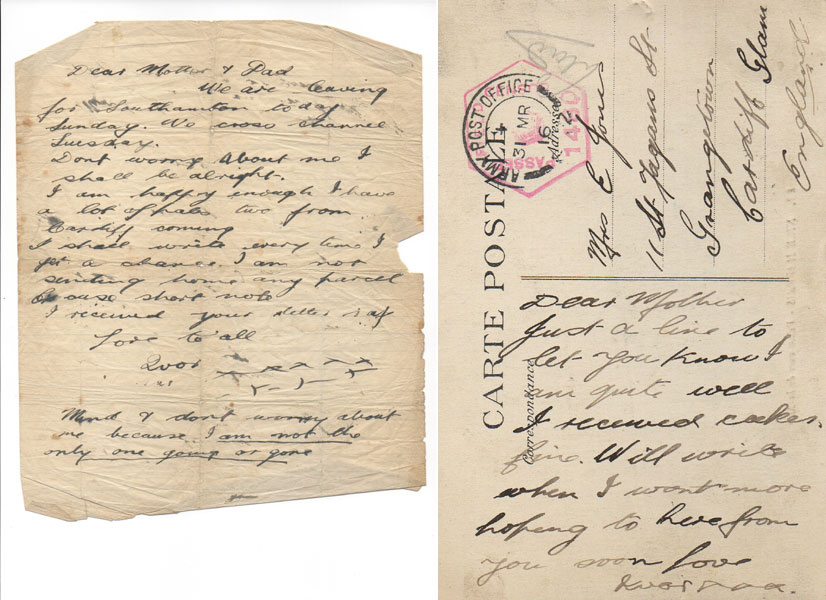 Dear Mother & Dad
We are leaving
for Southamton today
Sunday. We cross channel
Tuesday.
Dont worry about me I
shall be alright.
I am happy enough I have
a lot of pals two from
Cardiff coming
I shall write every time I
get a chance. I am not
sending home any parcel
Excuse short note
I received your letter
Love to all
Ivor
x x x x x
x x x
Mind & dont worry about
me because I am not the
only one going or gone
ARMY POST OFFICE
31 MR
16
PASSED
CARTE POSTALE
Correspondance
Adresse
Mrs E Jones
11 St Fagans St
Grangetown
Cardiff Glam
England
Dear Mother
Just a line to
let you know I
am quite well
I received cakes.
fine. Will write
when I want more
hoping to here from
you soon love
Ivor x x x.